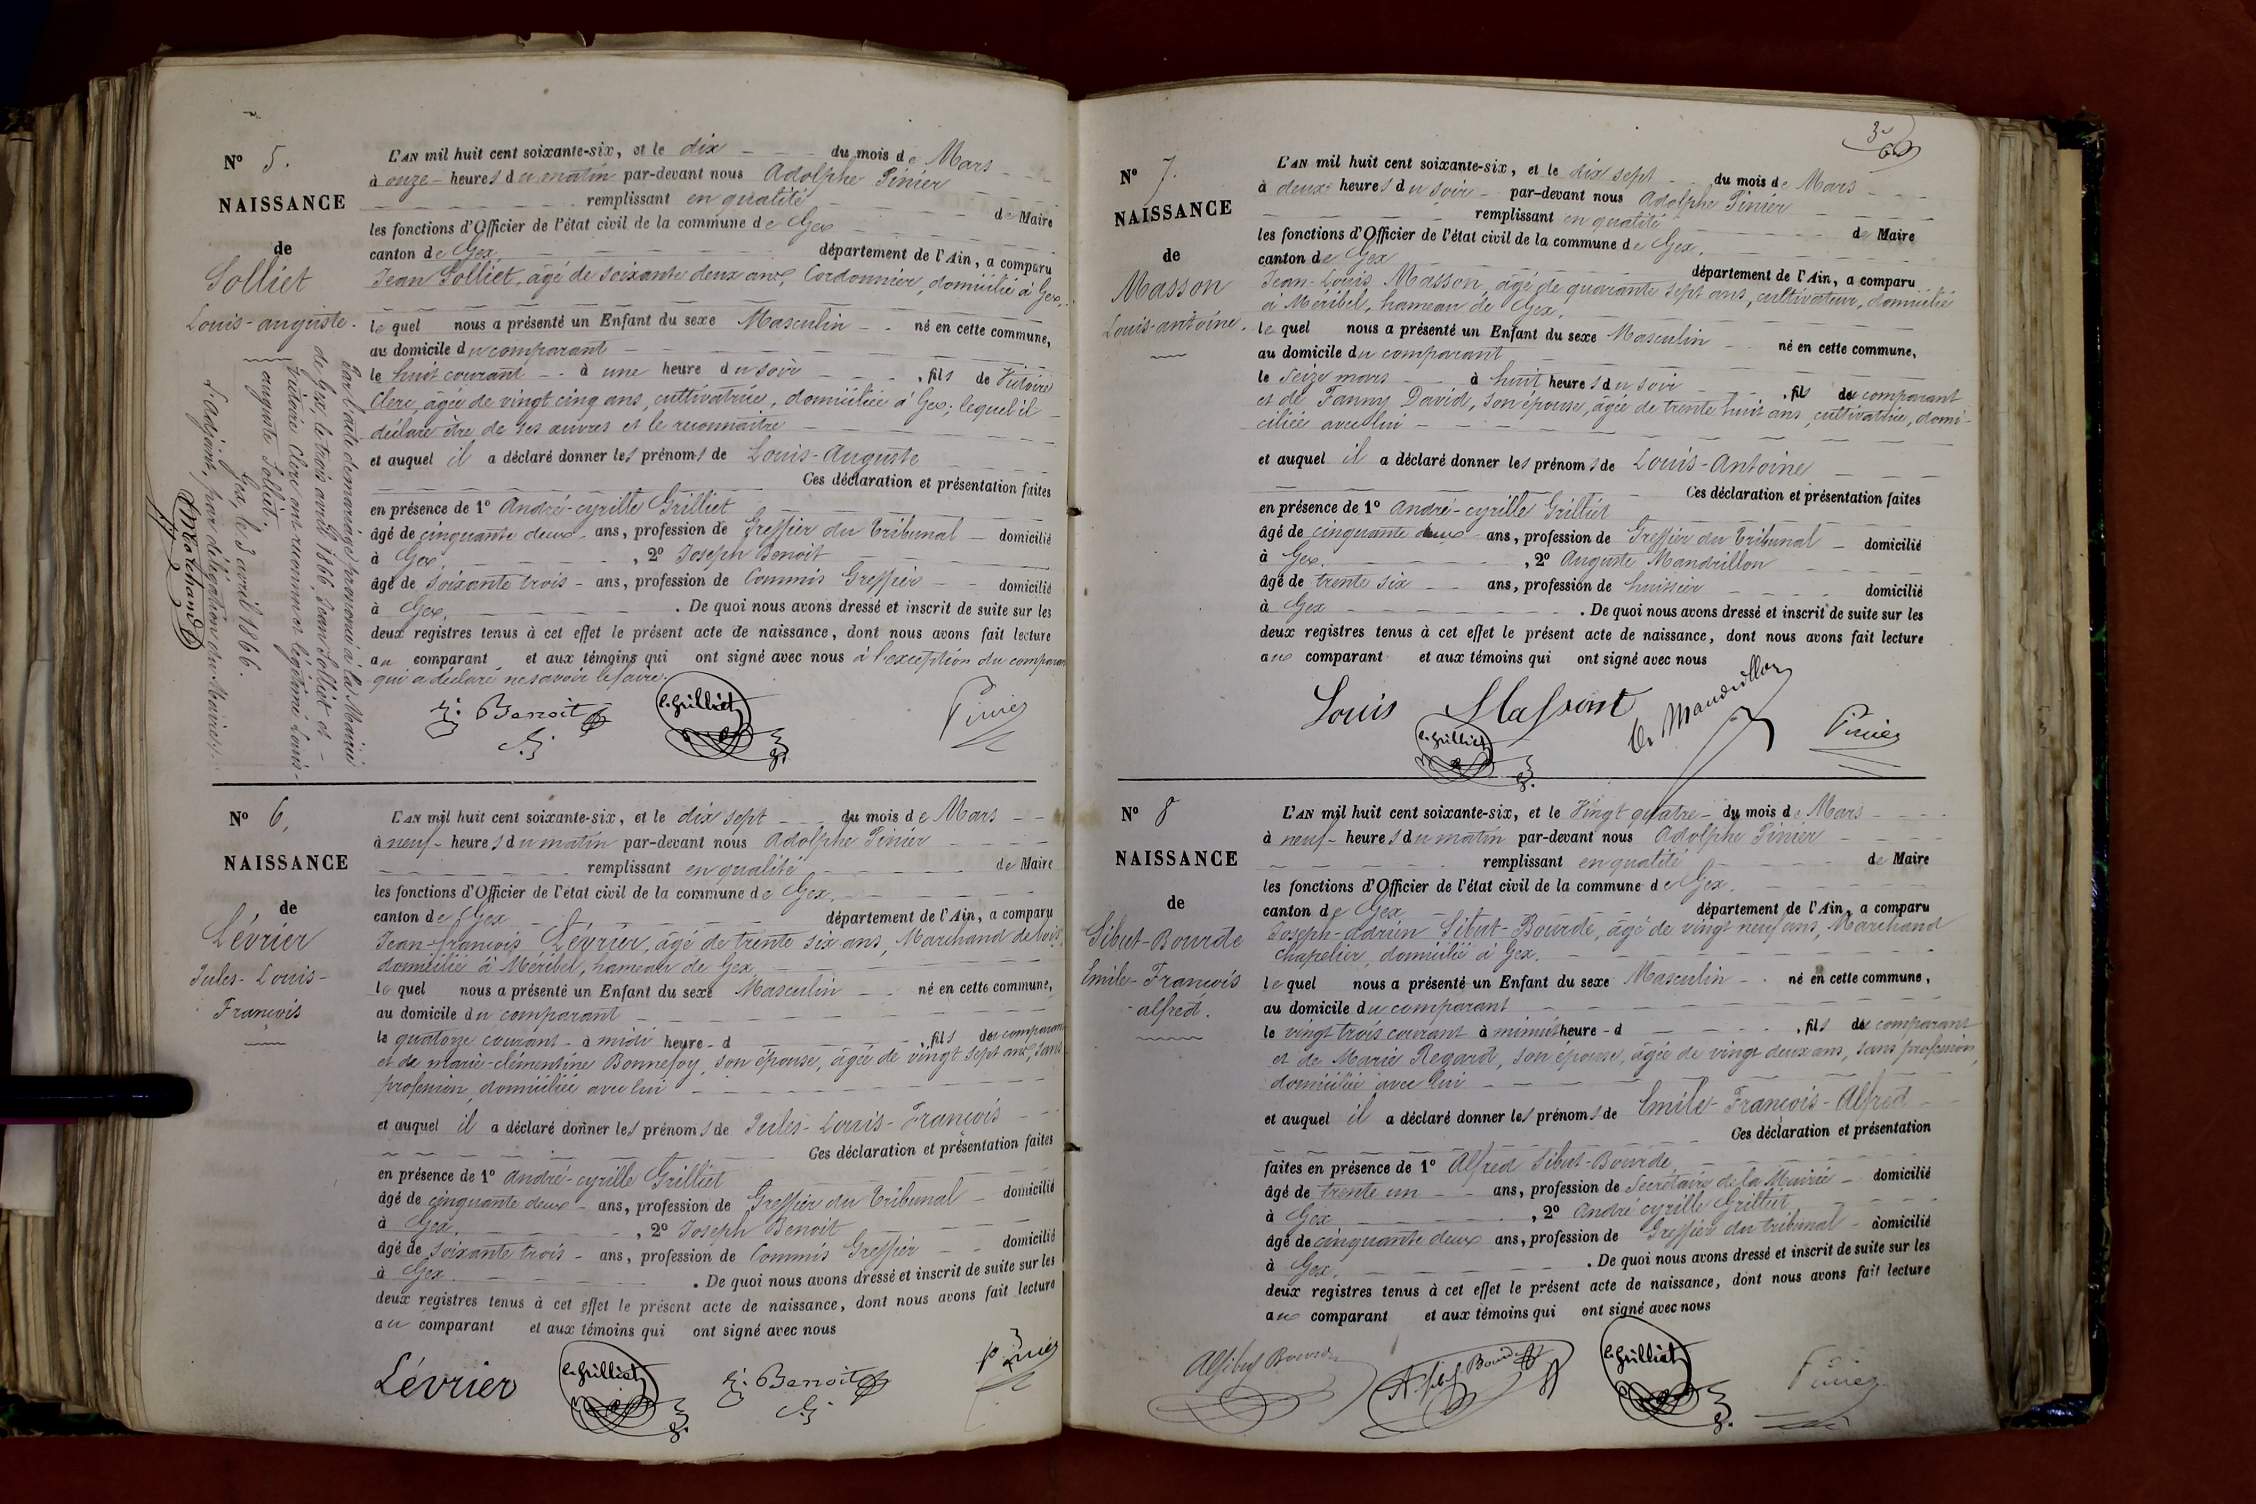 N° 5.
NAISSANCE
de
Solliet
Louis-auguste.
L'AN mil huit cent soixante-six, et le dix du mois de Mars
à onze heures du matin par-devant nous Adolphe Pinier
remplissant en qualité de Maire
les fonctions d'Officier de l'état civil de la commune de Gex
canton de Gex département de l'Ain, a comparu
Jean Solliet, âgé de soixante deux ans, Cordonnier, domicilié à Gex,
lequel nous a présenté un Enfant du sexe Masculin né en cette commune,
au domicile du comparant
le huit courant à une heure du soir, fils de Victoire
Clerc, âgée de vingt cinq ans, cultivatrice, domiciliée à Gex; lequel il
déclare être de ses œuvres et le reconnaître
et auquel il a déclaré donner les prénoms de Louis-Auguste
Ces déclaration et présentation faites
en présence de 1° André-cyrille Grilliet
âgé de cinquante deux ans, profession de Greffier du Tribunal domicilié
à Gex, 2° Joseph Benoit
âgé de soixante trois ans, profession de Commis Greffier domicilié
à Gex. De quoi nous avons dressé et inscrit de suite sur les
deux registres tenus à cet effet le présent acte de naissance, dont nous avons fait lecture
au comparant et aux témoins qui ont signé avec nous à l'exception du comparant
qui a déclaré ne savoir le faire.
J. Benoit
C. Grilliet
Pinier
Par l'acte de mariage prononcé à la Mairie
de Gex, le trois avril 1866, Jean Solliet et
Victoire Clerc ont reconnu et légitimé Louis-
auguste Solliet
Gex, le 3 avril 1866.
L'adjoint, par délégation du Maire,
Marchand
N° 6,
NAISSANCE
de
Lévrier
Jules-Louis-
François
L'AN mil huit cent soixante-six, et le dix sept du mois de Mars
à neuf heures du matin par-devant nous Adolphe Pinier
remplissant en qualité de Maire
les fonctions d'Officier de l'état civil de la commune de Gex,
canton de Gex département de l'Ain, a comparu
Jean-françois Lévrier, âgé de trente six ans, Marchand de bois,
domicilié à Méribel, hameau de Gex
lequel nous a présenté un Enfant du sexe Masculin né en cette commune,
au domicile du comparant
le quatorze courant à midi heure d, fils du comparant
et de marie-clémentine Bonnefoy, son épouse, âgée de vingt sept ans, sans
profession, domiciliée avec lui
et auquel il a déclaré donner les prénoms de Jules-Louis-François
Ces déclaration et présentation faites
en présence de 1° André-cyrille Grilliet
âgé de cinquante deux ans, profession de Greffier du Tribunal domicilié
à Gex, 2° Joseph Benoit
âgé de soixante trois ans, profession de Commis Greffier domicilié
à Gex. De quoi nous avons dressé et inscrit de suite sur les
deux registres tenus à cet effet le présent acte de naissance, dont nous avons fait lecture
au comparant et aux témoins qui ont signé avec nous
Lévrier
C. Grilliet
J. Benoit
Pinier
3
N° 7.
NAISSANCE
de
Masson
Louis-antoine.
L'AN mil huit cent soixante-six, et le dix sept du mois de Mars
à deux heures du soir par-devant nous Adolphe Pinier
remplissant en qualité de Maire
les fonctions d'Officier de l'état civil de la commune de Gex,
canton de Gex département de l'Ain, a comparu
Jean-Louis Masson, âgé de quarante sept ans, cultivateur, domicilié
à Méribel, hameau de Gex,
lequel nous a présenté un Enfant du sexe Masculin né en cette commune,
au domicile du comparant
le seize mars à huit heures du soir, fils du comparant
et de Fanny David, son épouse, âgée de trente huit ans, cultivatrice, domi-
ciliée avec lui
et auquel il a déclaré donner les prénoms de Louis-Antoine
Ces déclaration et présentation faites
en présence de 1° André-cyrille Grilliet
âgé de cinquante deux ans, profession de Greffier du Tribunal domicilié
à Gex, 2° Auguste Mandrillon
âgé de trente six ans, profession de huissier domicilié
à Gex. De quoi nous avons dressé et inscrit de suite sur les
deux registres tenus à cet effet le présent acte de naissance, dont nous avons fait lecture
au comparant et aux témoins qui ont signé avec nous
Louis Massont
C. Grilliet
Mandrillon
Pinier
N° 8
NAISSANCE
de
Sibut-Bourde
Emile-François
-alfred.
L'AN mil huit cent soixante-six, et le Vingt quatre du mois de Mars
à neuf heures du matin par-devant nous Adolphe Pinier
remplissant en qualité de Maire
les fonctions d'Officier de l'état civil de la commune de Gex
canton de Gex département de l'Ain, a comparu
Joseph-adrien Sibut-Bourde, âgé de vingt neuf ans, Marchand
chapelier, domicilié à Gex.
lequel nous a présenté un Enfant du sexe Masculin né en cette commune,
au domicile du comparant
le vingt trois courant à minuit heure d, fils du comparant
et de Marie Regard, son épouse, âgée de vingt deux ans, sans profession,
domiciliée avec lui
et auquel il a déclaré donner les prénoms de Emile-François-Alfred
Ces déclaration et présentation
faites en présence de 1° Alfred Sibut-Bourde
âgé de trente un ans, profession de Secrétaire de la Mairie domicilié
à Gex, 2° André cyrille Grilliet
âgé de cinquante deux ans, profession de Greffier du tribunal domicilié
à Gex. De quoi nous avons dressé et inscrit de suite sur les
deux registres tenus à cet effet le présent acte de naissance, dont nous avons fait lecture
au comparant et aux témoins qui ont signé avec nous
A Sibut Bourde
A. Sibut Bourde
C. Grilliet
Pinier